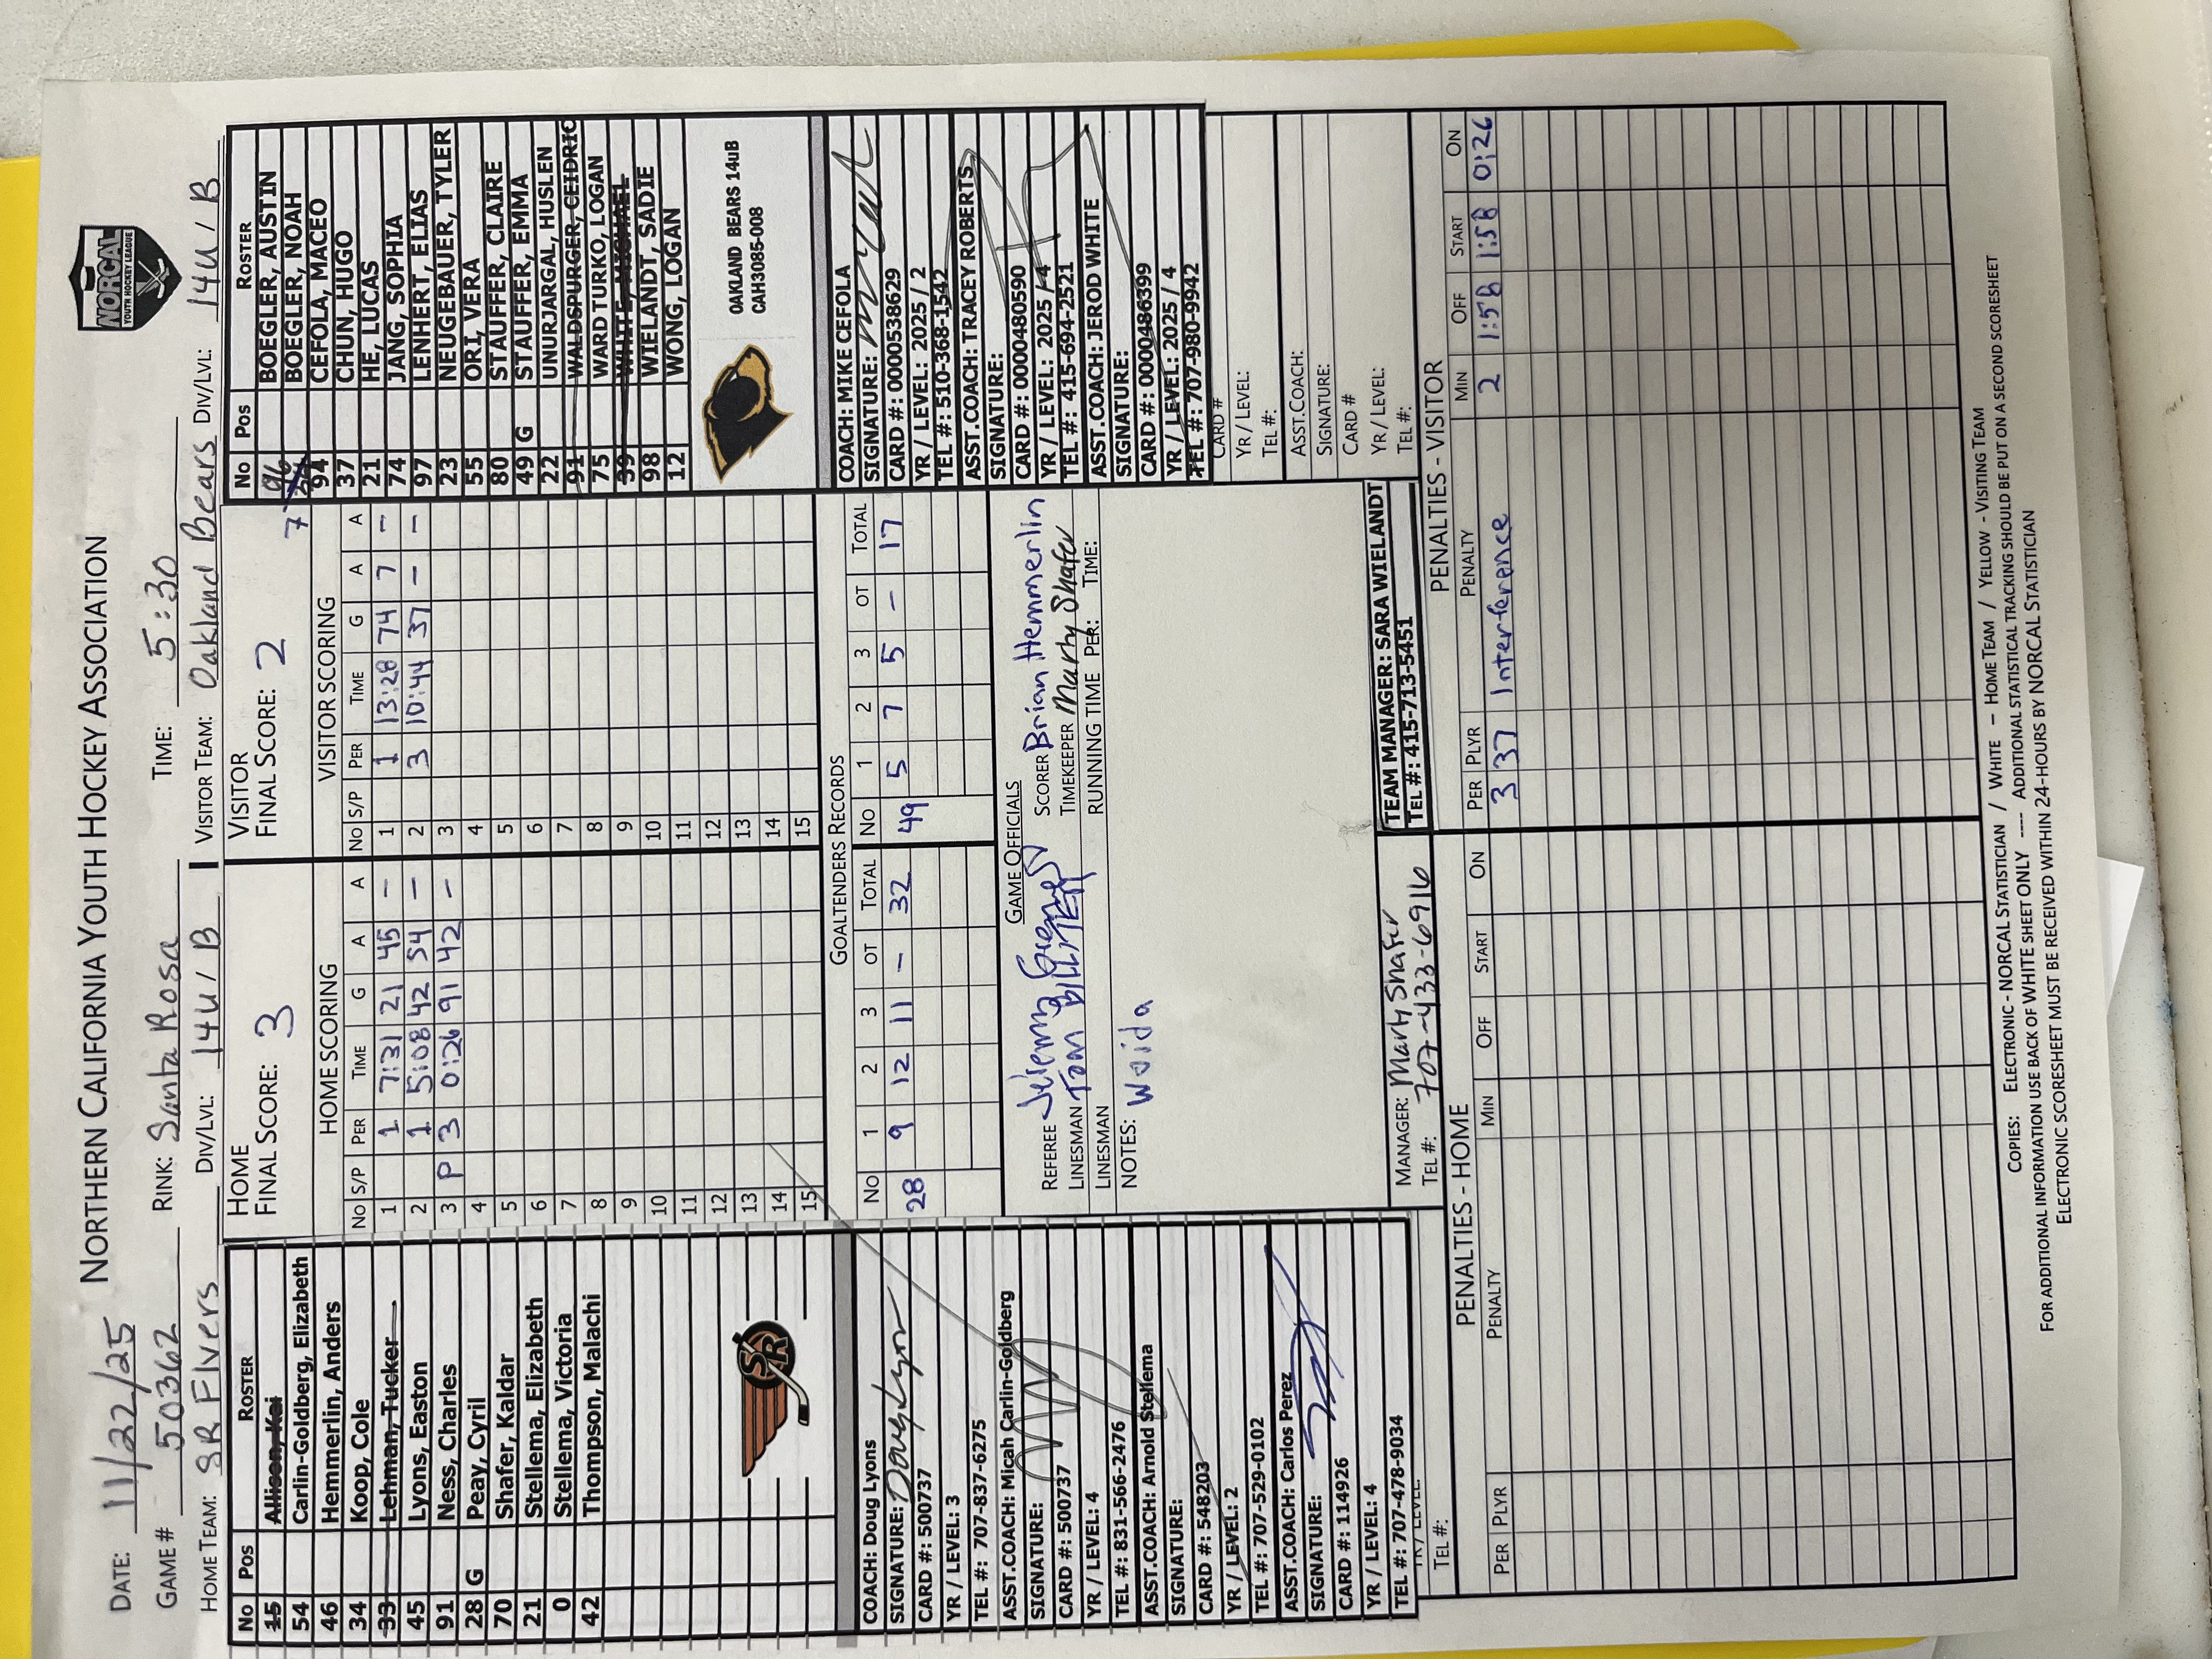 NORTHERN CALIFORNIA YOUTH HOCKEY ASSOCIATION
NORCAL
YOUTH HOCKEY LEAGUE
DATE: 11/22/25
GAME # 50362 RINK: Santa Rosa TIME: 5:30
HOME TEAM: SR Flyers DIV/LVL: 14U/B VISITOR TEAM: Oakland Bears DIV/LVL: 14U/B
No Pos ROSTER
15 Allison, Kai
54 Carlin-Goldberg, Elizabeth
46 Hemmerlin, Anders
34 Koop, Cole
33 Lehman, Tucker
45 Lyons, Easton
91 Ness, Charles
28 G Peay, Cyril
70 Shafer, Kaldar
21 Stellema, Elizabeth
0 Stellema, Victoria
42 Thompson, Malachi
SR
COACH: Doug Lyons
SIGNATURE: Doug Lyons
CARD #: 500737
YR / LEVEL: 3
TEL #: 707-837-6275
ASST.COACH: Micah Carlin-Goldberg
SIGNATURE:
CARD #: 500737
YR / LEVEL: 4
TEL #: 831-566-2476
ASST.COACH: Arnold Stellema
SIGNATURE:
CARD #: 548203
YR / LEVEL: 2
TEL #: 707-529-0102
ASST.COACH: Carlos Perez
SIGNATURE:
CARD #: 114926
YR / LEVEL: 4
TEL #: 707-478-9034
YR / LEVEL:
TEL #:
HOME
FINAL SCORE: 3
HOME SCORING
No S/P PER TIME G A A
1 1 7:31 21 45 -
2 1 5:08 42 54 -
3 P 3 0:26 91 42 -
4
5
6
7
8
9
10
11
12
13
14
15
VISITOR
FINAL SCORE: 2
VISITOR SCORING
No S/P PER TIME G A A
1 1 13:28 74 7 -
2 3 10:44 37 - -
3
4
5
6
7
8
9
10
11
12
13
14
15
GOALTENDERS RECORDS
No 1 2 3 OT TOTAL No 1 2 3 OT TOTAL
28 9 12 11 - 32 49 5 7 5 - 17
GAME OFFICIALS
REFEREE SCORER Brian Hemmerlin
LINESMAN Tom TIMEKEEPER Marty Shafer
LINESMAN RUNNING TIME PER: TIME:
NOTES: Woida
MANAGER: Marty Shafer
TEL #: 707-433-6916
TEAM MANAGER: SARA WIELANDT
TEL #: 415-713-5451
No Pos ROSTER
96 BOEGLER, AUSTIN
7 BOEGLER, NOAH
94 CEFOLA, MACEO
37 CHUN, HUGO
21 HE, LUCAS
74 JANG, SOPHIA
97 LENHERT, ELIAS
23 NEUGEBAUER, TYLER
55 ORI, VERA
80 STAUFFER, CLAIRE
49 G STAUFFER, EMMA
22 UNURJARGAL, HUSLEN
91 WALDSPURGER, CEIDRIC
75 WARD TURKO, LOGAN
39 WHITE, MICHAEL
98 WIELANDT, SADIE
12 WONG, LOGAN
OAKLAND BEARS 14uB
CAH3085-008
COACH: MIKE CEFOLA
SIGNATURE:
CARD #: 0000538629
YR / LEVEL: 2025 / 2
TEL #: 510-368-1542
ASST.COACH: TRACEY ROBERTS
SIGNATURE:
CARD #: 0000480590
YR / LEVEL: 2025 / 4
TEL #: 415-694-2521
ASST.COACH: JEROD WHITE
SIGNATURE:
CARD #: 0000486399
YR / LEVEL: 2025 / 4
TEL #: 707-980-9942
CARD #
YR / LEVEL:
TEL #:
ASST.COACH:
SIGNATURE:
CARD #
YR / LEVEL:
TEL #:
PENALTIES - HOME
PER PLYR PENALTY MIN OFF START ON
PENALTIES - VISITOR
PER PLYR PENALTY MIN OFF START ON
3 37 Interference 2 1:58 1:58 0:26
COPIES: ELECTRONIC - NORCAL STATISTICIAN / WHITE – HOME TEAM / YELLOW - VISITING TEAM
FOR ADDITIONAL INFORMATION USE BACK OF WHITE SHEET ONLY ---- ADDITIONAL STATISTICAL TRACKING SHOULD BE PUT ON A SECOND SCORESHEET
ELECTRONIC SCORESHEET MUST BE RECEIVED WITHIN 24-HOURS BY NORCAL STATISTICIAN